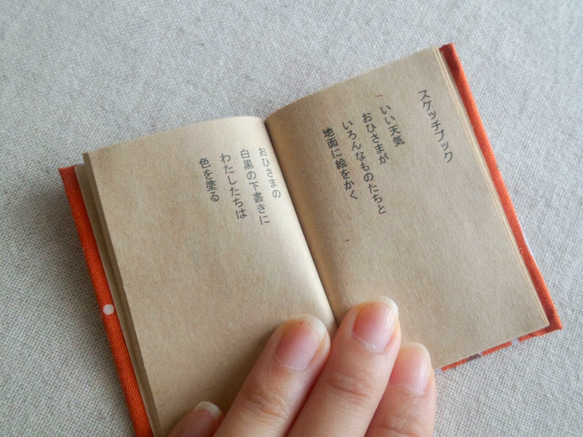 スケッチブック
いい天気
おひさまが
いろんなものたちと
地面に絵をかく
おひさまの
白黒の下書きに
わたしたちは
色を塗る